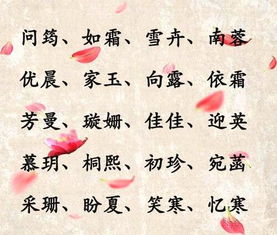 问筠、如霜、雪卉、南蓉
优晨、家玉、向露、依霜
芳曼、璇姗、佳佳、迎英
慕玥、桐熙、初珍、宛菡
采珊、盼夏、笑寒、忆寒